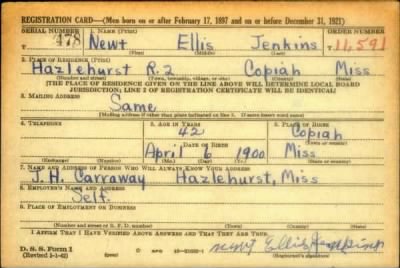 REGISTRATION CARD—(Men born on or after February 17, 1897 and on or before December 31, 1921)
SERIAL NUMBER 1. NAME (Print) ORDER NUMBER
T 478 Newt Ellis Jenkins T 11,591
(First) (Middle) (Last)
2. PLACE OF RESIDENCE (Print)
Hazlehurst R.2 Copiah Miss
(Number and street) (Town, township, village, or city) (County) (State)
[THE PLACE OF RESIDENCE GIVEN ON THE LINE ABOVE WILL DETERMINE LOCAL BOARD
JURISDICTION; LINE 2 OF REGISTRATION CERTIFICATE WILL BE IDENTICAL]
3. MAILING ADDRESS
Same
(Mailing address if other than place indicated on line 2. If same insert word same)
4. TELEPHONE 5. AGE IN YEARS 6. PLACE OF BIRTH
42 Copiah
DATE OF BIRTH (Town or county)
April 6 1900 Miss
(Exchange) (Number) (Mo.) (Day) (Yr.) (State or country)
7. NAME AND ADDRESS OF PERSON WHO WILL ALWAYS KNOW YOUR ADDRESS
J.H. Carraway Hazlehurst, Miss
8. EMPLOYER'S NAME AND ADDRESS
Self
9. PLACE OF EMPLOYMENT OR BUSINESS
(Number and street or R. F. D. number) (Town) (County) (State)
I AFFIRM THAT I HAVE VERIFIED ABOVE ANSWERS AND THAT THEY ARE TRUE.
D. S. S. Form 1 Newt Ellis Jenkins
(Revised 1-1-42) (over)